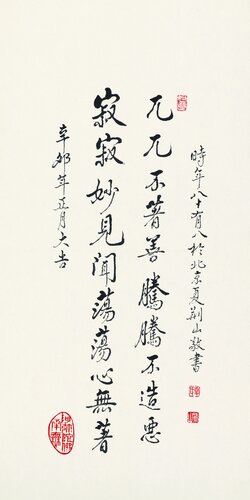 時年八十有八於北京夏荊山敬書
兀兀不著善騰騰不造惡
寂寂妙見聞蕩蕩心無著
辛卯年正月大吉